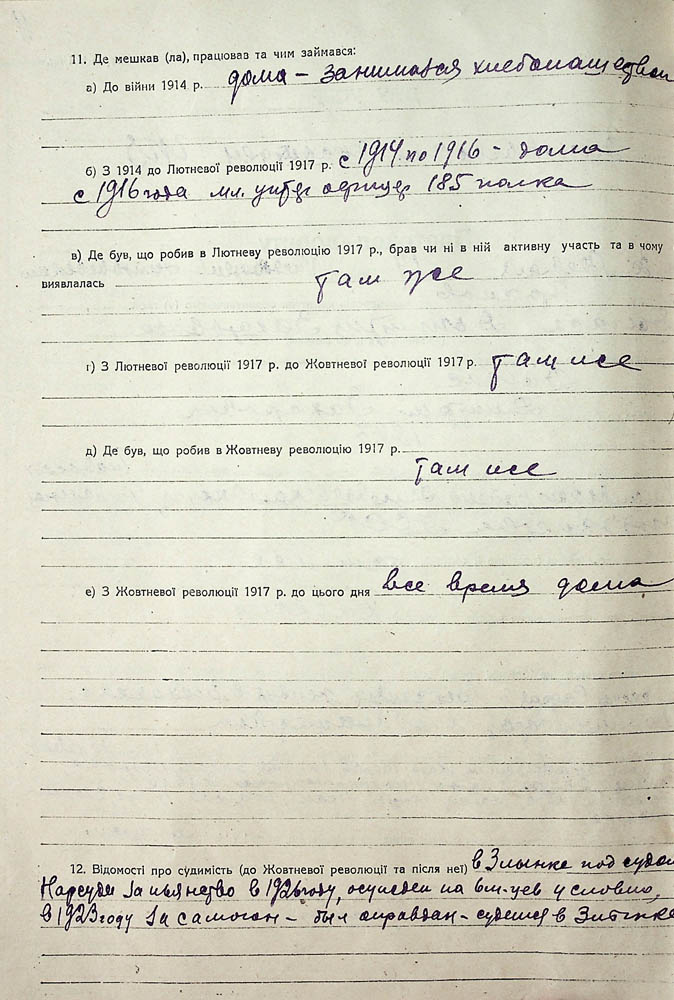 11. Де мешкав (ла), працював та чим займався:
а) До війни 1914 р. дома – занимался хлебопашеством
б) З 1914 до Лютневої революції 1917 р. с 1914 по 1916 – дома
с 1916 года мл. унтер офицер 185 полка
в) Де був, що робив в Лютневу революцію 1917 р., брав чи ні в ній активну участь та в чому
виявлалась там же
г) З Лютневої революції 1917 р. до Жовтневої революції 1917 р. там же
д) Де був, що робив в Жовтневу революцію 1917 р.
там же
е) З Жовтневої революції 1917 р. до цього дня все время дома
12. Відомості про судимість (до Жовтневої революції та після неї) в Злынке под судом
Нарсуда за пьянство в 1926 году, осужден на 6 м-цев условно,
в 1923 году за самогон – был оправдан – судился в Злынке